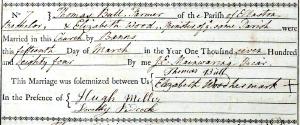 No 7 } Thomas Ball Farmer of the Parish of Ellaston
Bachelor, & Elizabeth Wood, Spinster of same Parish were
Married in this Church by Banns
this fifteenth Day of March in the Year One Thousand seven Hundred
and Eighty four By me Wm Mainwaring Vicar
This Marriage was solemnized between Us { Thomas Ball
Elizabeth Wood her mark +
In the Presence of { Hugh Mellor
Timothy